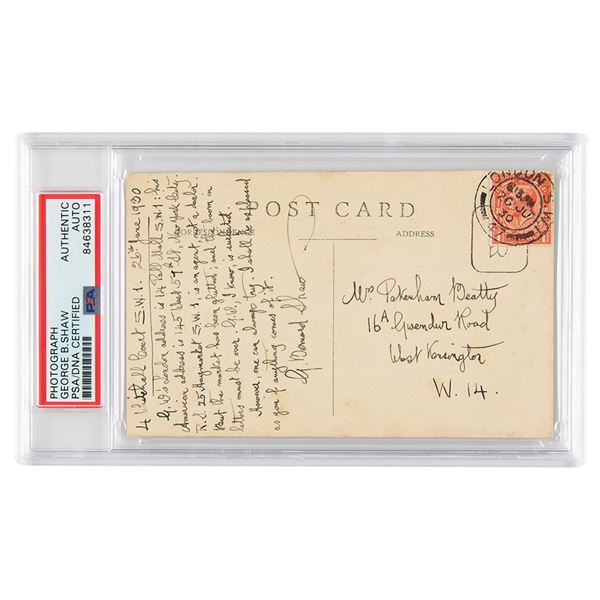 PHOTOGRAPH
GEORGE B.SHAW
PSA/DNA CERTIFIED
AUTHENTIC
AUTO
84638311
PSA
POST CARD
CORRESPONDENCE
ADDRESS
4 Whitehall Court S.W.1. 26th June 1930
G. W's London address is 14 Pall Mall S.W.1: his
American address is 145 West 59th St, New York City.
R. d. 25 Haymarket S.W.1 is an agent, not a dealer.
But the market has been glutted; and the boom in
letters must be over. G.W., I know, is
However one can always try. I shall be as pleased
as you if anything comes of it.
G. Bernard Shaw
LONDON S.W.
26 JU
30
Mrs Pakenham Beatty
16A Gwendwr Road
West Kensington
W. 14.